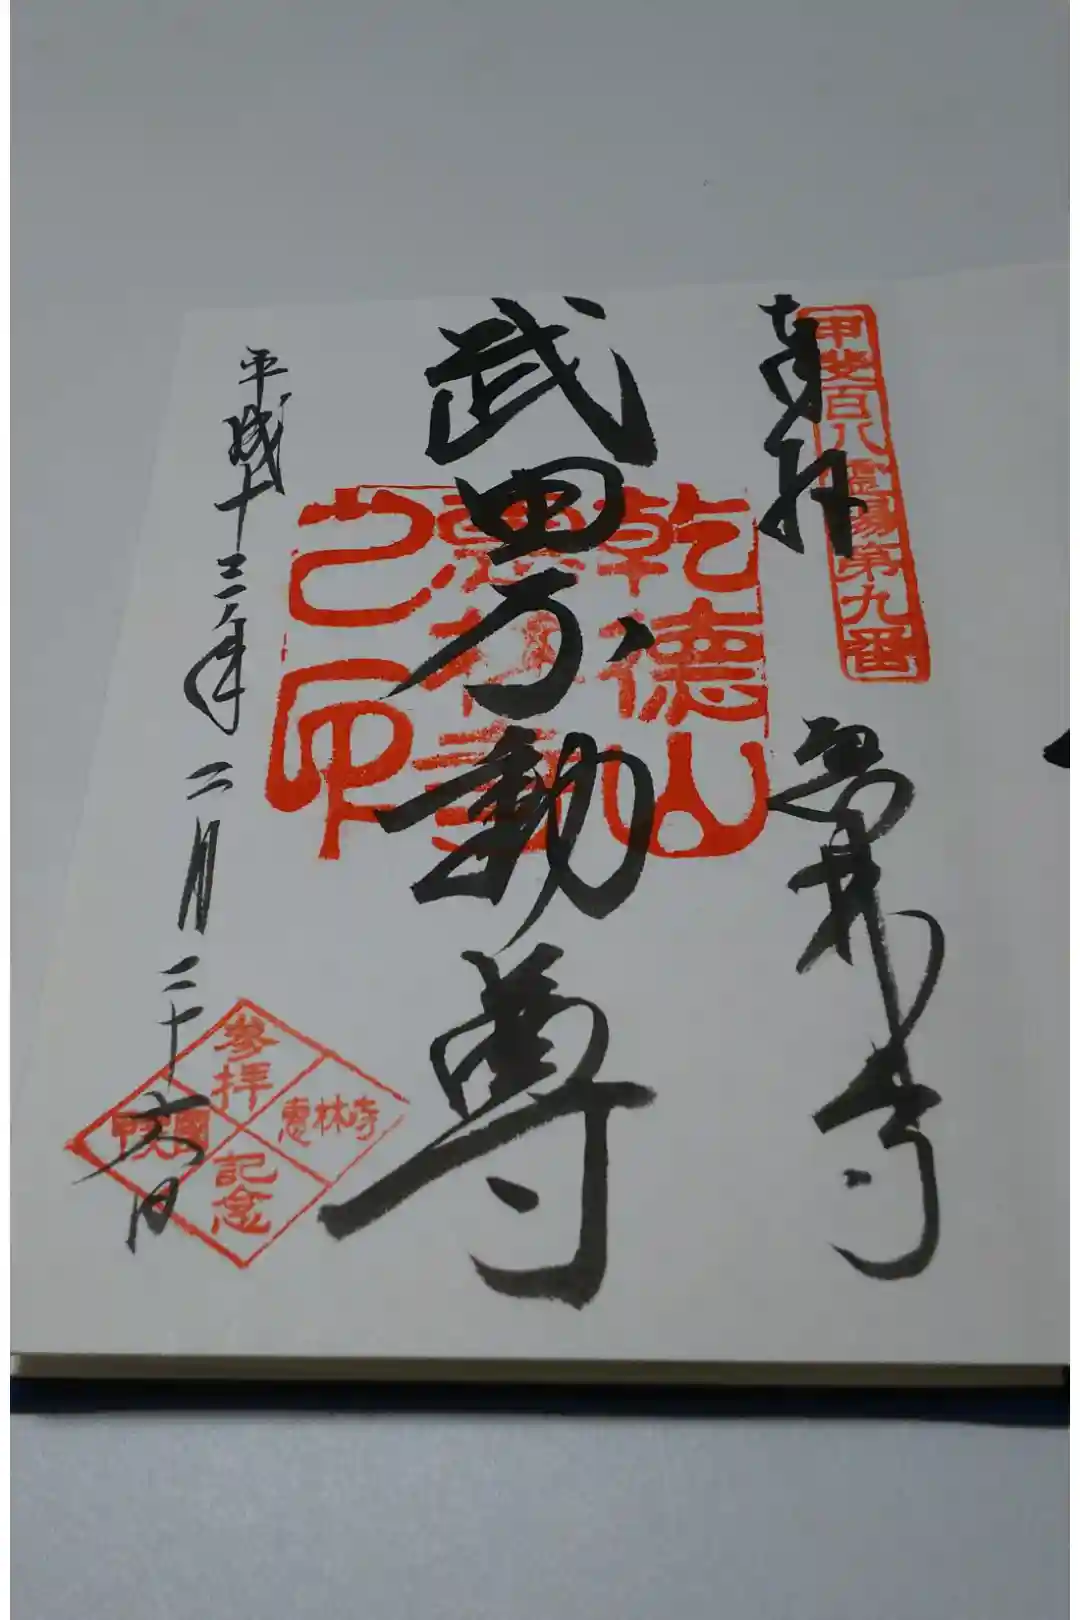 奉拝
甲斐百八霊場第九番
恵林寺
武田不動尊
乾徳山
恵林寺
之印
平成十三年二月二十六日
参拝
記念
恵林寺